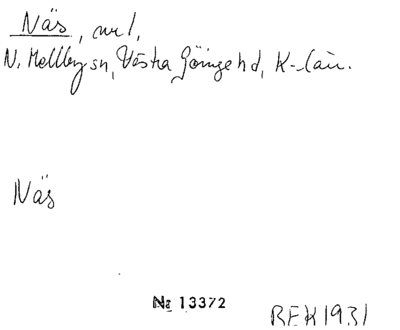 Näs, nr 1,
N. Mellby sn, Västra Göinge hd, K-län.
Näs
Nr 13372
BEK 1931